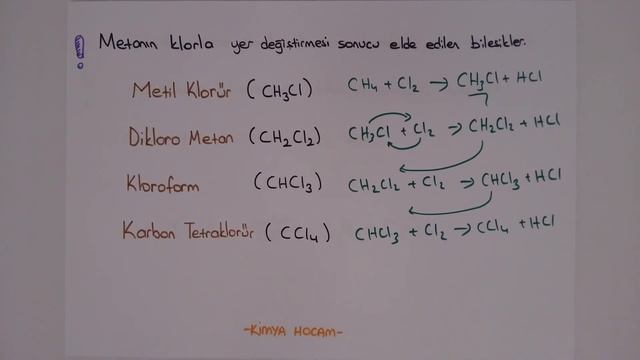 ! Metanın klorla yer değiştirmesi sonucu elde edilen bileşikler.
Metil Klorür (CH₃Cl) CH₄ + Cl₂ → CH₃Cl + HCl
Dikloro Metan (CH₂Cl₂) CH₃Cl + Cl₂ → CH₂Cl₂ + HCl
Kloroform (CHCl₃) CH₂Cl₂ + Cl₂ → CHCl₃ + HCl
Karbon Tetraklorür (CCl₄) CHCl₃ + Cl₂ → CCl₄ + HCl
-KİMYA HOCAM-